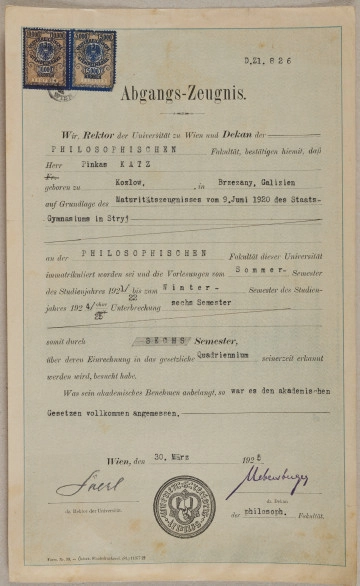 D.Zl. 826
Abgangs-Zeugnis.
Wir, Rektor der Universität zu Wien und Dekan der
PHILOSOPHISCHEN Fakultät, bestätigen hiemit, daß
Herr Pinkas KATZ
Fr.
geboren zu Kozlow, in Brzezany, Galizien
auf Grundlage des Maturitätszeugnisses vom 9.Juni 1920 des Staats-
Gymnasiums in Stryj
an der PHILOSOPHISCHEN Fakultät dieser Universität
immatrikuliert worden sei und die Vorlesungen vom Sommer- Semester
des Studienjahres 1921/22 bis zum Winter- Semester des Studien-
jahres 1924/25 Unterbrechung sechs Semester
somit durch SECHS Semester,
über deren Einrechnung in das gesetzliche Quadriennium seinerzeit erkannt
werden wird, besucht habe.
Was sein akademisches Benehmen anbelangt, so war es den akademischen
Gesetzen vollkommen angemessen.
Wien, den 30. März 1925
d. Z. Rektor der Universität.
d. Z. Dekan
der philosoph. Fakultät.